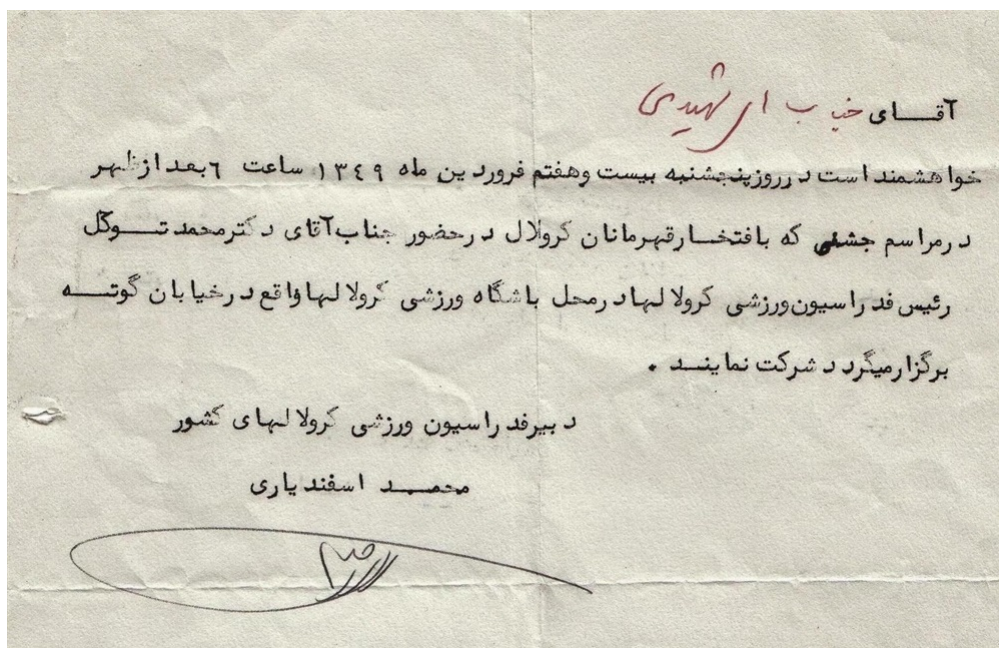 آقای جناب ای شهیدی
خواهشمند است در روز پنجشنبه بیست وهفتم فروردین ماه ١٣٤٩ ساعت ٦ بعد از ظهر
در مراسم جشنی که بافتخار قهرمانان کرولال در حضور جناب آقای دکتر محمد توکل
رئیس فدراسیون ورزشی کرولالها در محل باشگاه ورزشی کرولالها واقع در خیابان گوته
برگزار میگردد شرکت نمایند .
دبیر فدراسیون ورزشی کرولالهای کشور
محمد اسفندیاری